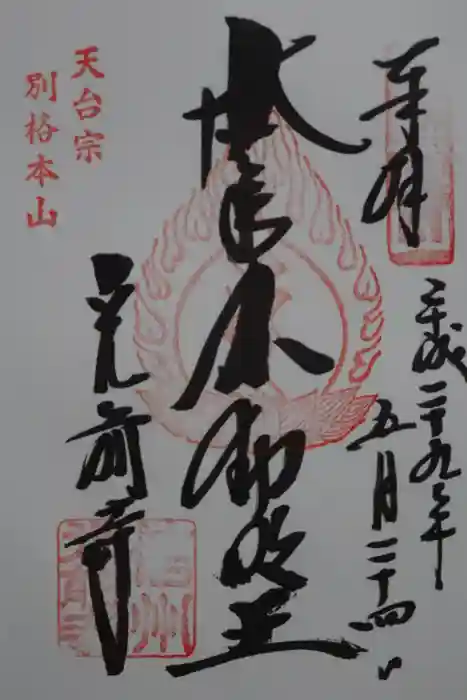 奉拝
平成二十九年
五月二十四日
不動明王
光前寺
天台宗
別格本山
信州